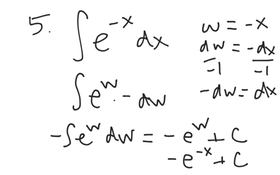 5. ∫ e^-x dx
w = -x
dw = -dx
-1 -1
-dw = dx
∫ e^w · -dw
-∫ e^w dw = -e^w + C
-e^-x + C